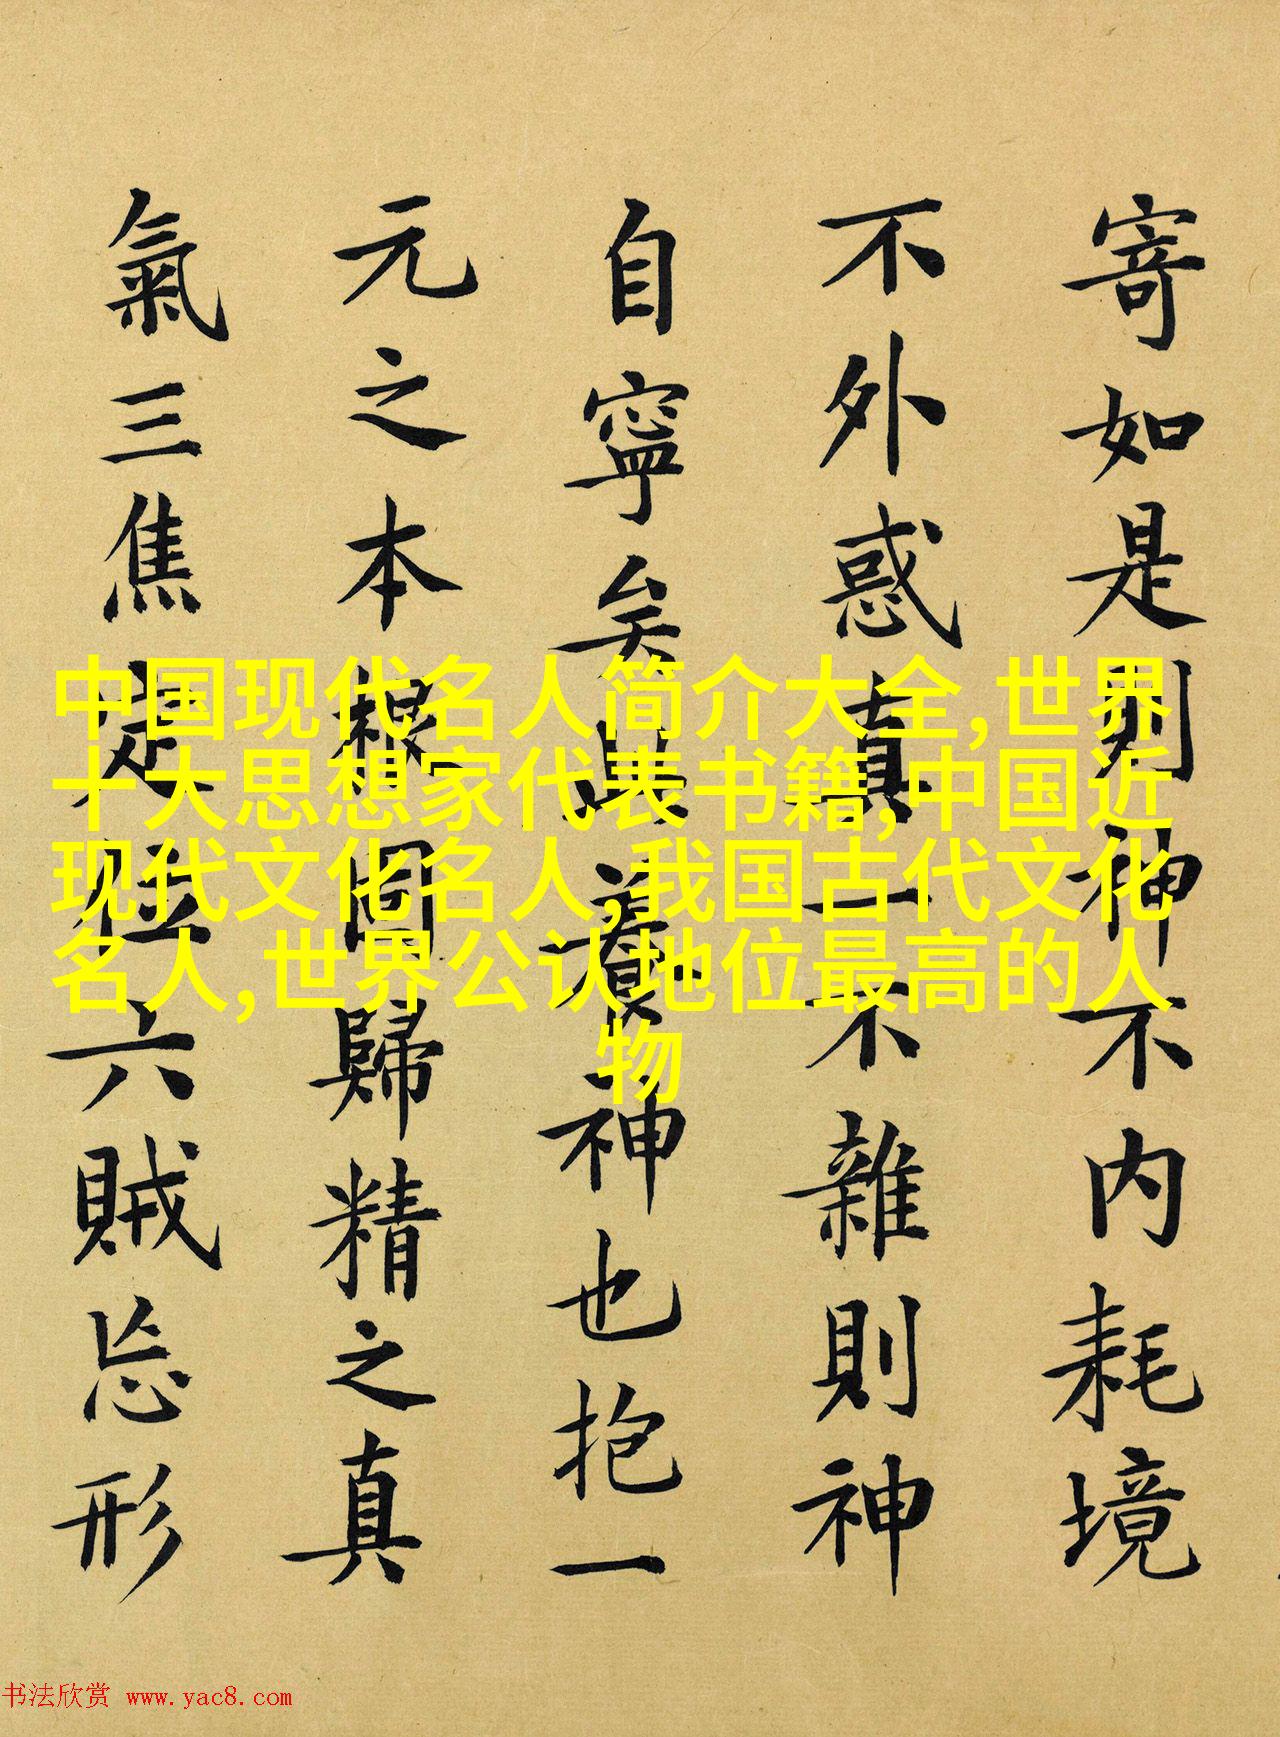 寄如是則神不内耗境
不外惑真一不雜則神
自寧矣此養神也抱一
元之本根固歸精之真
氣三焦定位六賊忘形
中国现代名人简介大全,世界
十大思想家代表书籍,中国近
现代文化名人,我国古代文化
名人,世界公认地位最高的人
物
书法欣赏 www.yac8.com